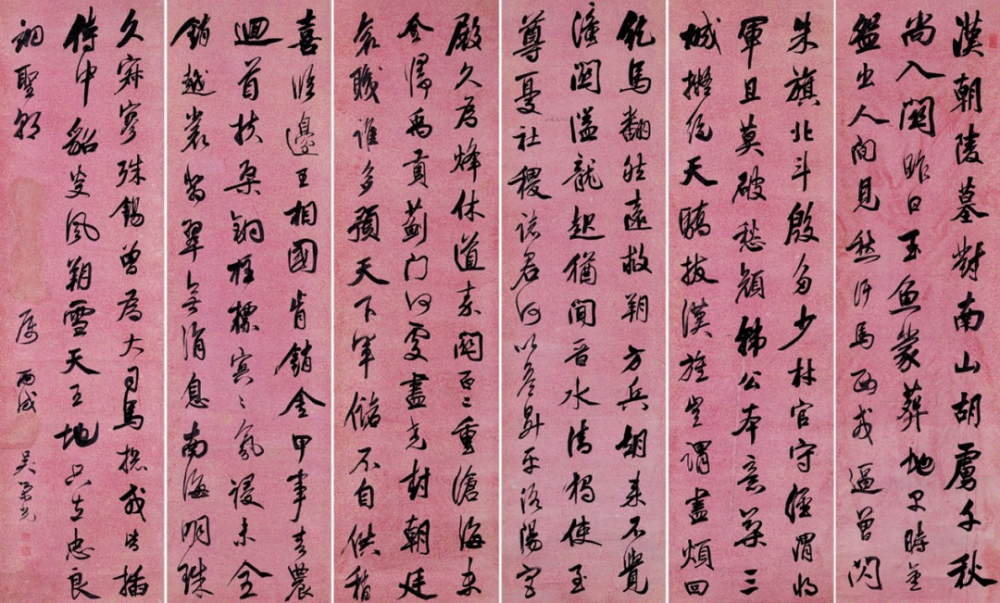 漢朝陵墓對南山胡虜千秋
尚入關昨日玉魚蒙葬地早時金
盌出人間見愁汗馬西戎逼曾閃
朱旗北斗殷多少材官守涇渭將
軍且莫破愁顏韓公本意築三
城擬絕天驕拔漢旌豈謂盡煩回
紇馬翻然遠救朔方兵胡來不覺
潼關隘龍起猶聞晉水清獨使至
尊憂社稷諸君何以答昇平洛陽宮
殿久為烽休道秦關百二重滄海未
全歸禹貢薊門何處盡堯封朝廷
袞職誰多預天下軍儲不自供稍
喜臨邊王相國肯銷金甲事春農
迴首扶桑銅柱標冥〻氛祲未全
銷越裳翡翠無消息南海明珠
久寂寥殊錫曾為大司馬總戎皆插
侍中貂炎風朔雪天王地只在忠良
翊聖朝
丙戌 吳